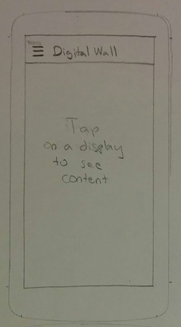 Menu
Digital Wall
Tap
on a display
to see
content